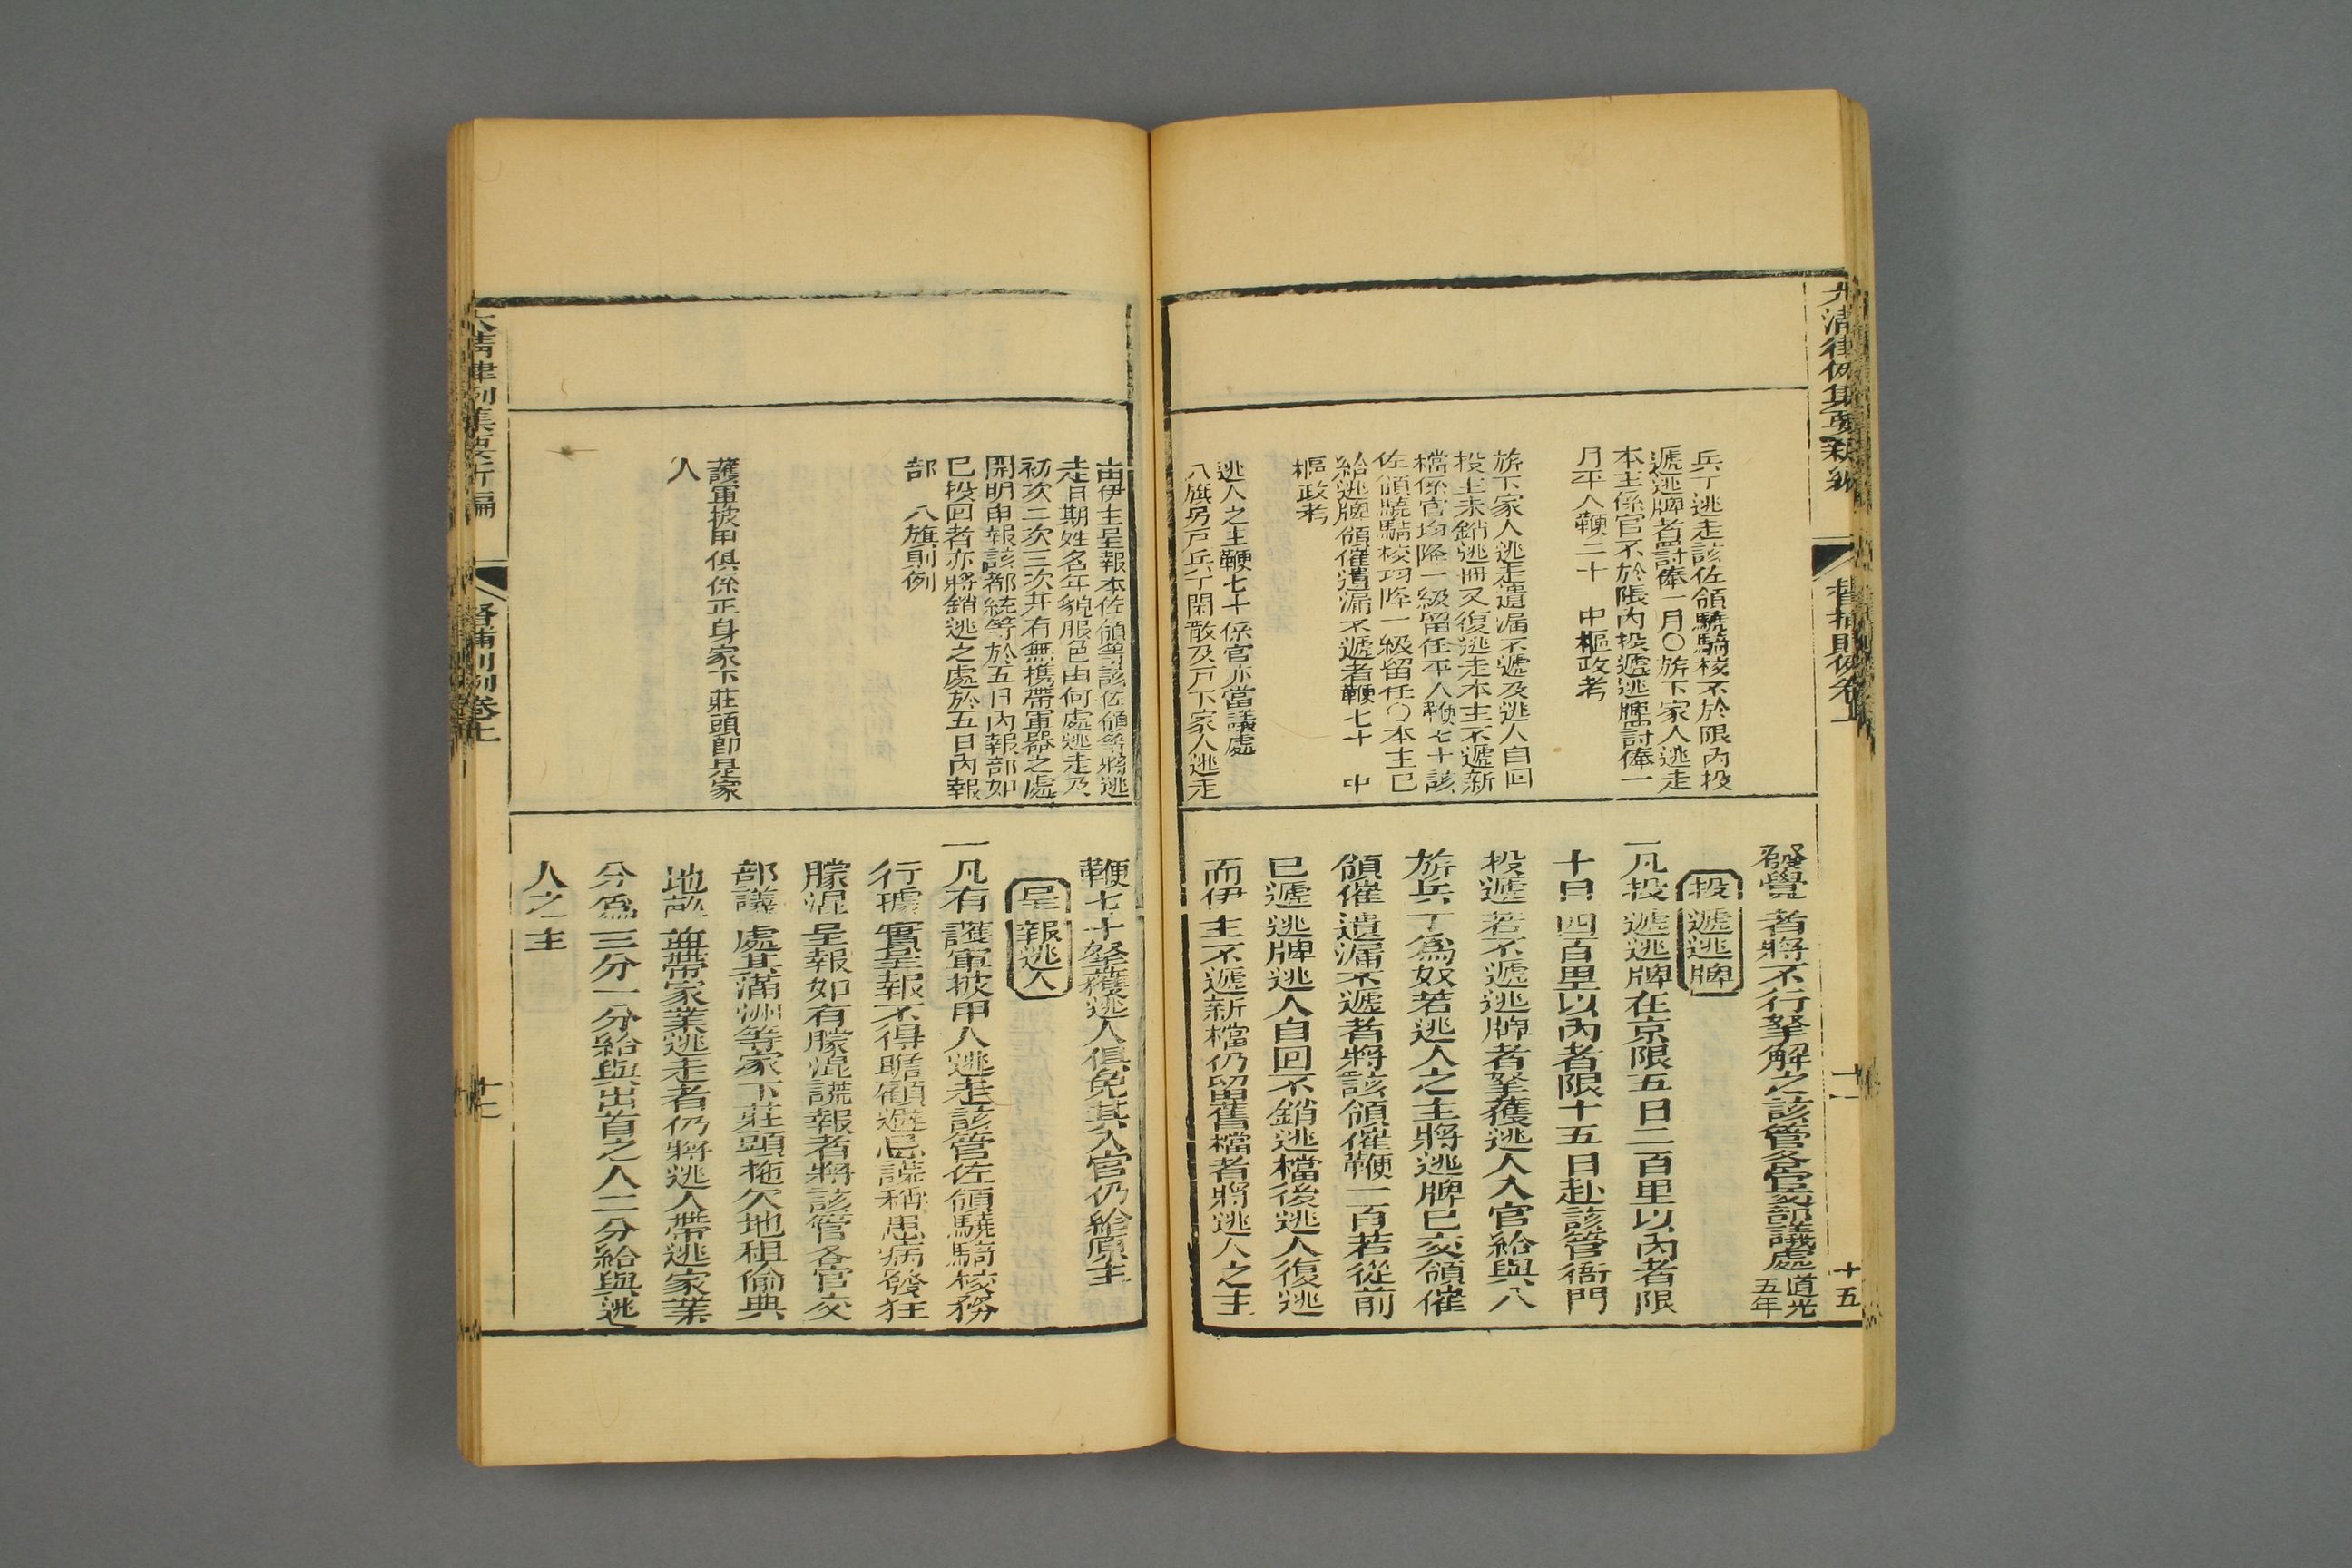 大清律例集要新編
督捕則例卷上
十五
兵丁逃走該佐領驍騎校不於限內投
遞逃牌者罰俸一月〇旂下家人逃走
本主係官不於限內投遞逃牌罰俸一
月平人鞭二十　中樞政考
旂下家人逃走遺漏不遞及逃人自回
投主未銷逃冊又復逃走本主不遞新
檔係官均降一級留任平人鞭七十該
佐領驍騎校均降一級留任〇本主已
給逃牌領催遺漏不遞者鞭七十　中
樞政考
逃人之主鞭七十係官亦當議處
八旗另戶兵丁閑散及戶下家人逃走
發覺者將不行拏解之該管各官交部議處道光
五年
投遞逃牌
一凡投遞逃牌在京限五日二百里以內者限
十日四百里以內者限十五日赴該管衙門
投遞若不遞逃牌者拏獲逃人入官給與八
旂兵丁為奴若逃人之主將逃牌已交領催
領催遺漏不遞者將該領催鞭一百若從前
已遞逃牌逃人自回不銷逃檔後逃人復逃
而伊主不遞新檔仍留舊檔者將逃人之主
由伊主呈報本佐領等該佐領等將逃
走日期姓名年貌服色由何處逃走及
初次二次三次并有無携帶軍器之處
開明申報該都統等於五日內報部如
已投回者亦將銷逃之處於五日內報
部　八旗則例
護軍披甲俱係正身家下莊頭即是家
人
鞭七十拏獲逃人俱免其入官仍給原主
呈報逃人
一凡有護軍披甲人逃走該管佐領驍騎校務
行據實呈報不得瞻顧避忌謊稱患病發狂
朦混呈報如有朦混謊報者將該管各官交
部議處其滿洲等家下莊頭拖欠地租偷典
地畝並帶家業逃走者仍將逃人帶逃家業
分為三分一分給與出首之人二分給與逃
人之主
大清律例集要新編
督捕則例卷上